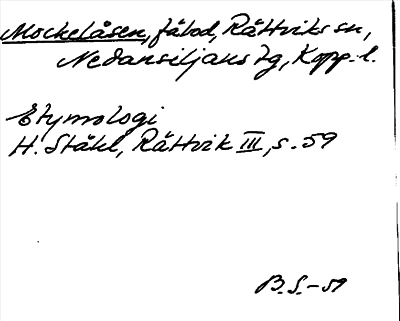 Mockelåsen, fäbod, Rättviks sn,
Nedansiljans tg, Kopp. l.
Etymologi
H. Ståhl, Rättvik III, s. 59
B.S. - 59